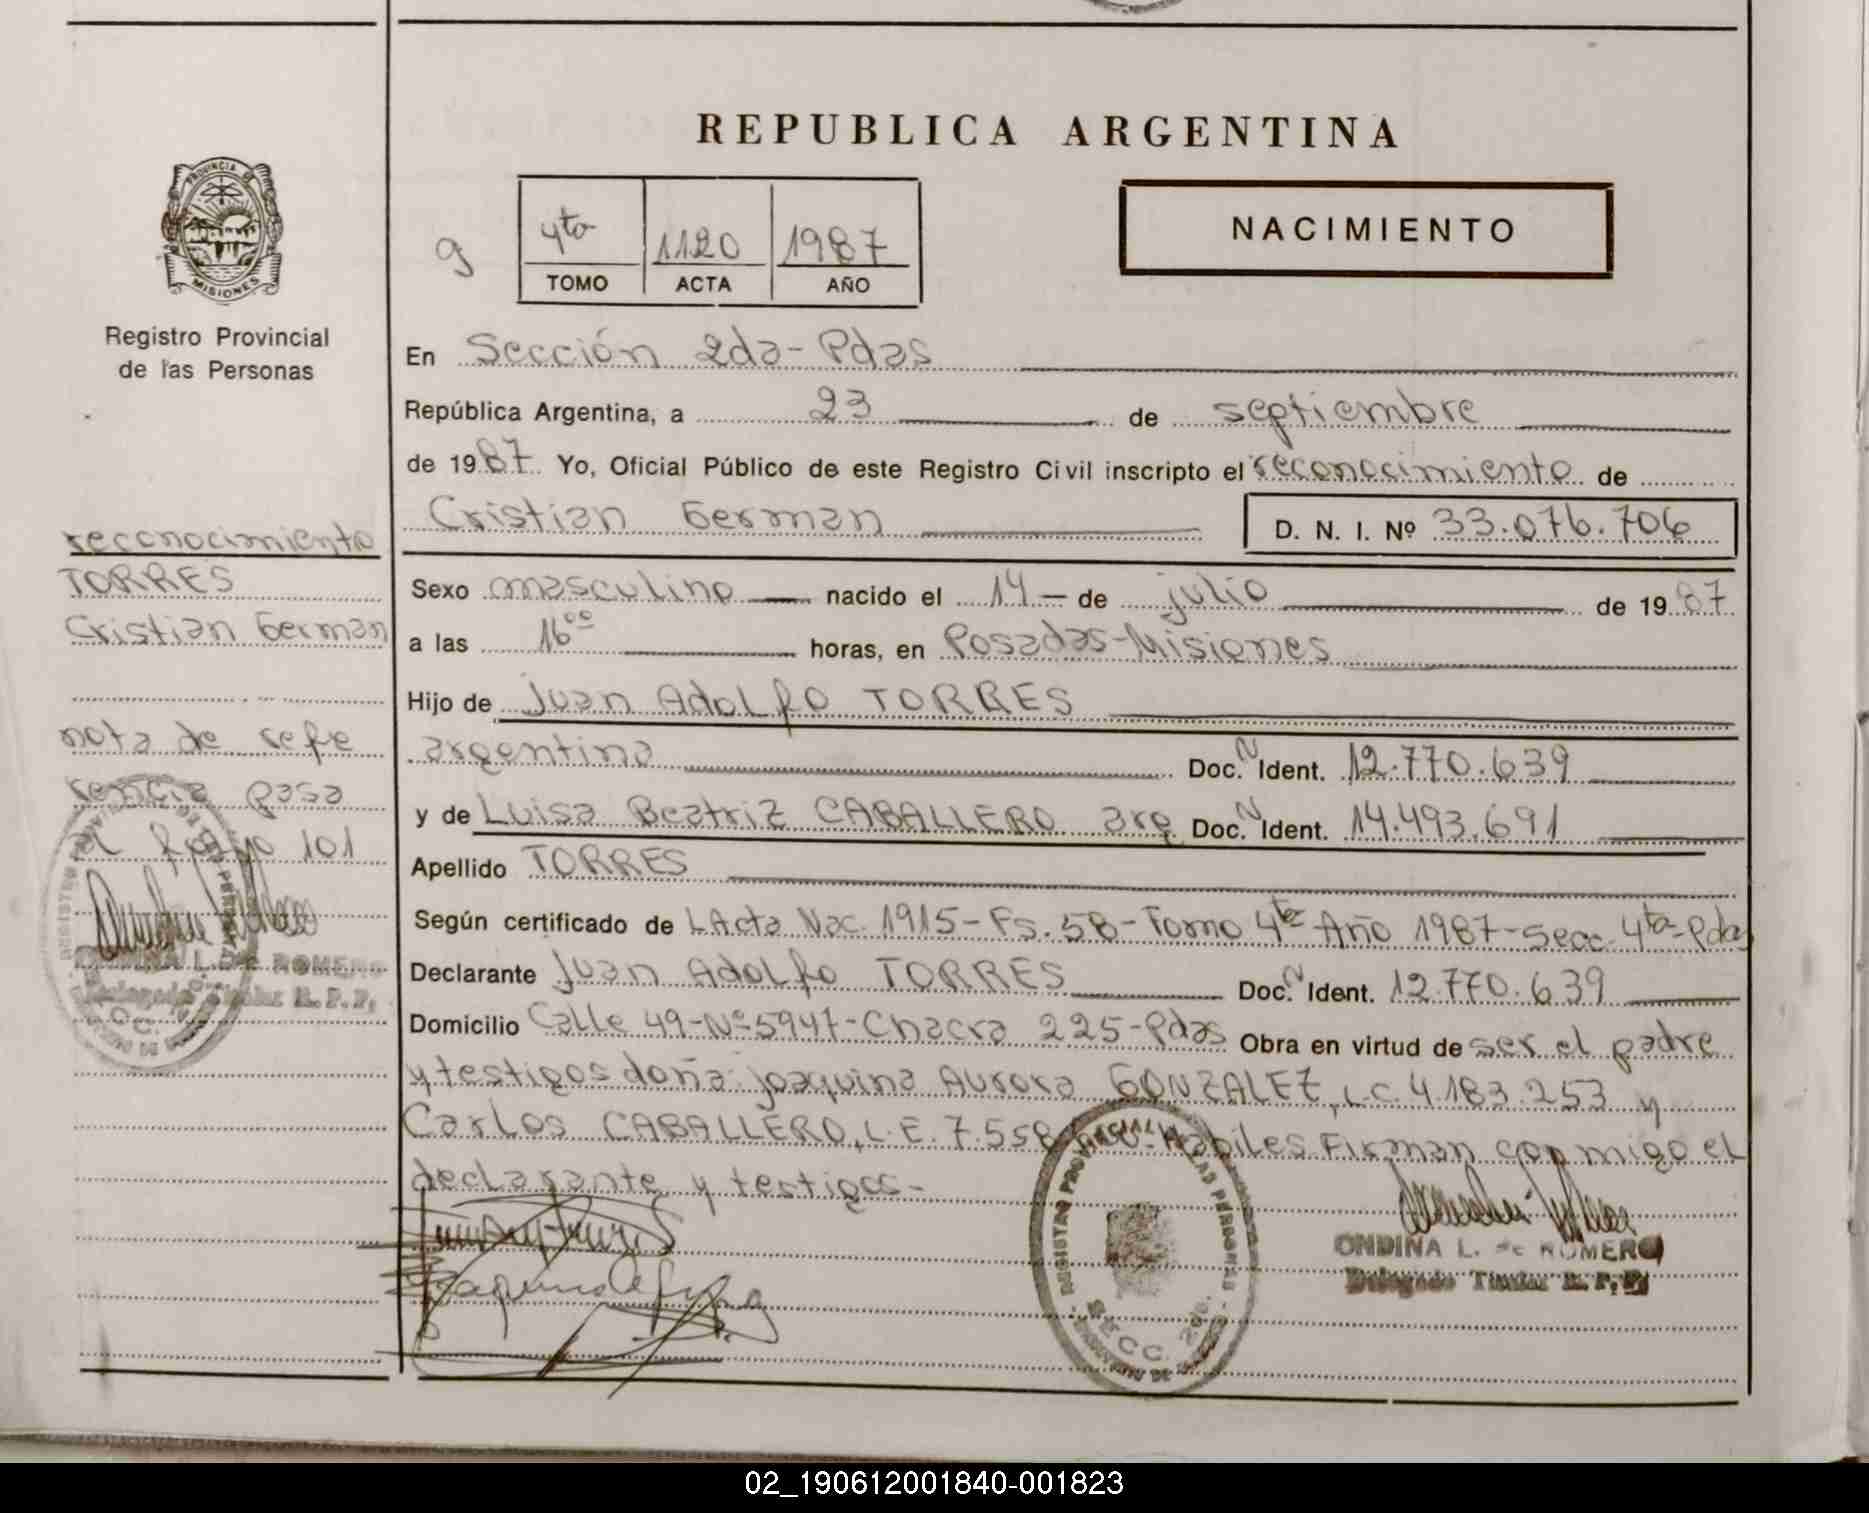 REPUBLICA ARGENTINA
PROVINCIA DE
MISIONES
Registro Provincial
de las Personas
9
4to 1120 1987
TOMO ACTA AÑO
NACIMIENTO
En Sección 2da - Pdas
República Argentina, a 23 de septiembre
de 1987 Yo, Oficial Público de este Registro Civil inscripto el reconocimiento de
Cristian German D. N. I. Nº 33.076.706
reconocimiento
TORRES
Cristian German
nota de refe
rencia pasa
al folio 101
ONDINA L. DE ROMERO
Delegado Titular R. P. P.
Sexo masculino nacido el 14 - de julio de 1987
a las 16ºº horas, en Posadas - Misiones
Hijo de Juan Adolfo TORRES
argentino Doc. N Ident. 12.770.639
y de Luisa Beatriz CABALLERO arg Doc. N Ident. 14.493.691
Apellido TORRES
Según certificado de L Acta Nac. 1915 - Fs. 58 - Tomo 4to Año 1987 - Secc. 4ta - Pdas
Declarante Juan Adolfo TORRES Doc. N Ident. 12.770.639
Domicilio Calle 49 - Nº 5947 - Chacra 225 - Pdas Obra en virtud de ser el padre
y testigos doña: Joaquina Aurora GONZALEZ, L.C. 4.183.253 y
Carlos CABALLERO, L.E. 7.558 Habiles Firman conmigo el
declarante y testigos -
REGISTRO PROVINCIAL DE LAS PERSONAS
SECC. 2da.
ONDINA L. de ROMERO
Delegado Titular R. P. P.
02_190612001840-001823